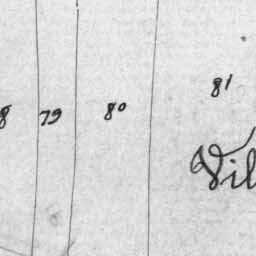 8 79 80 81
Vil